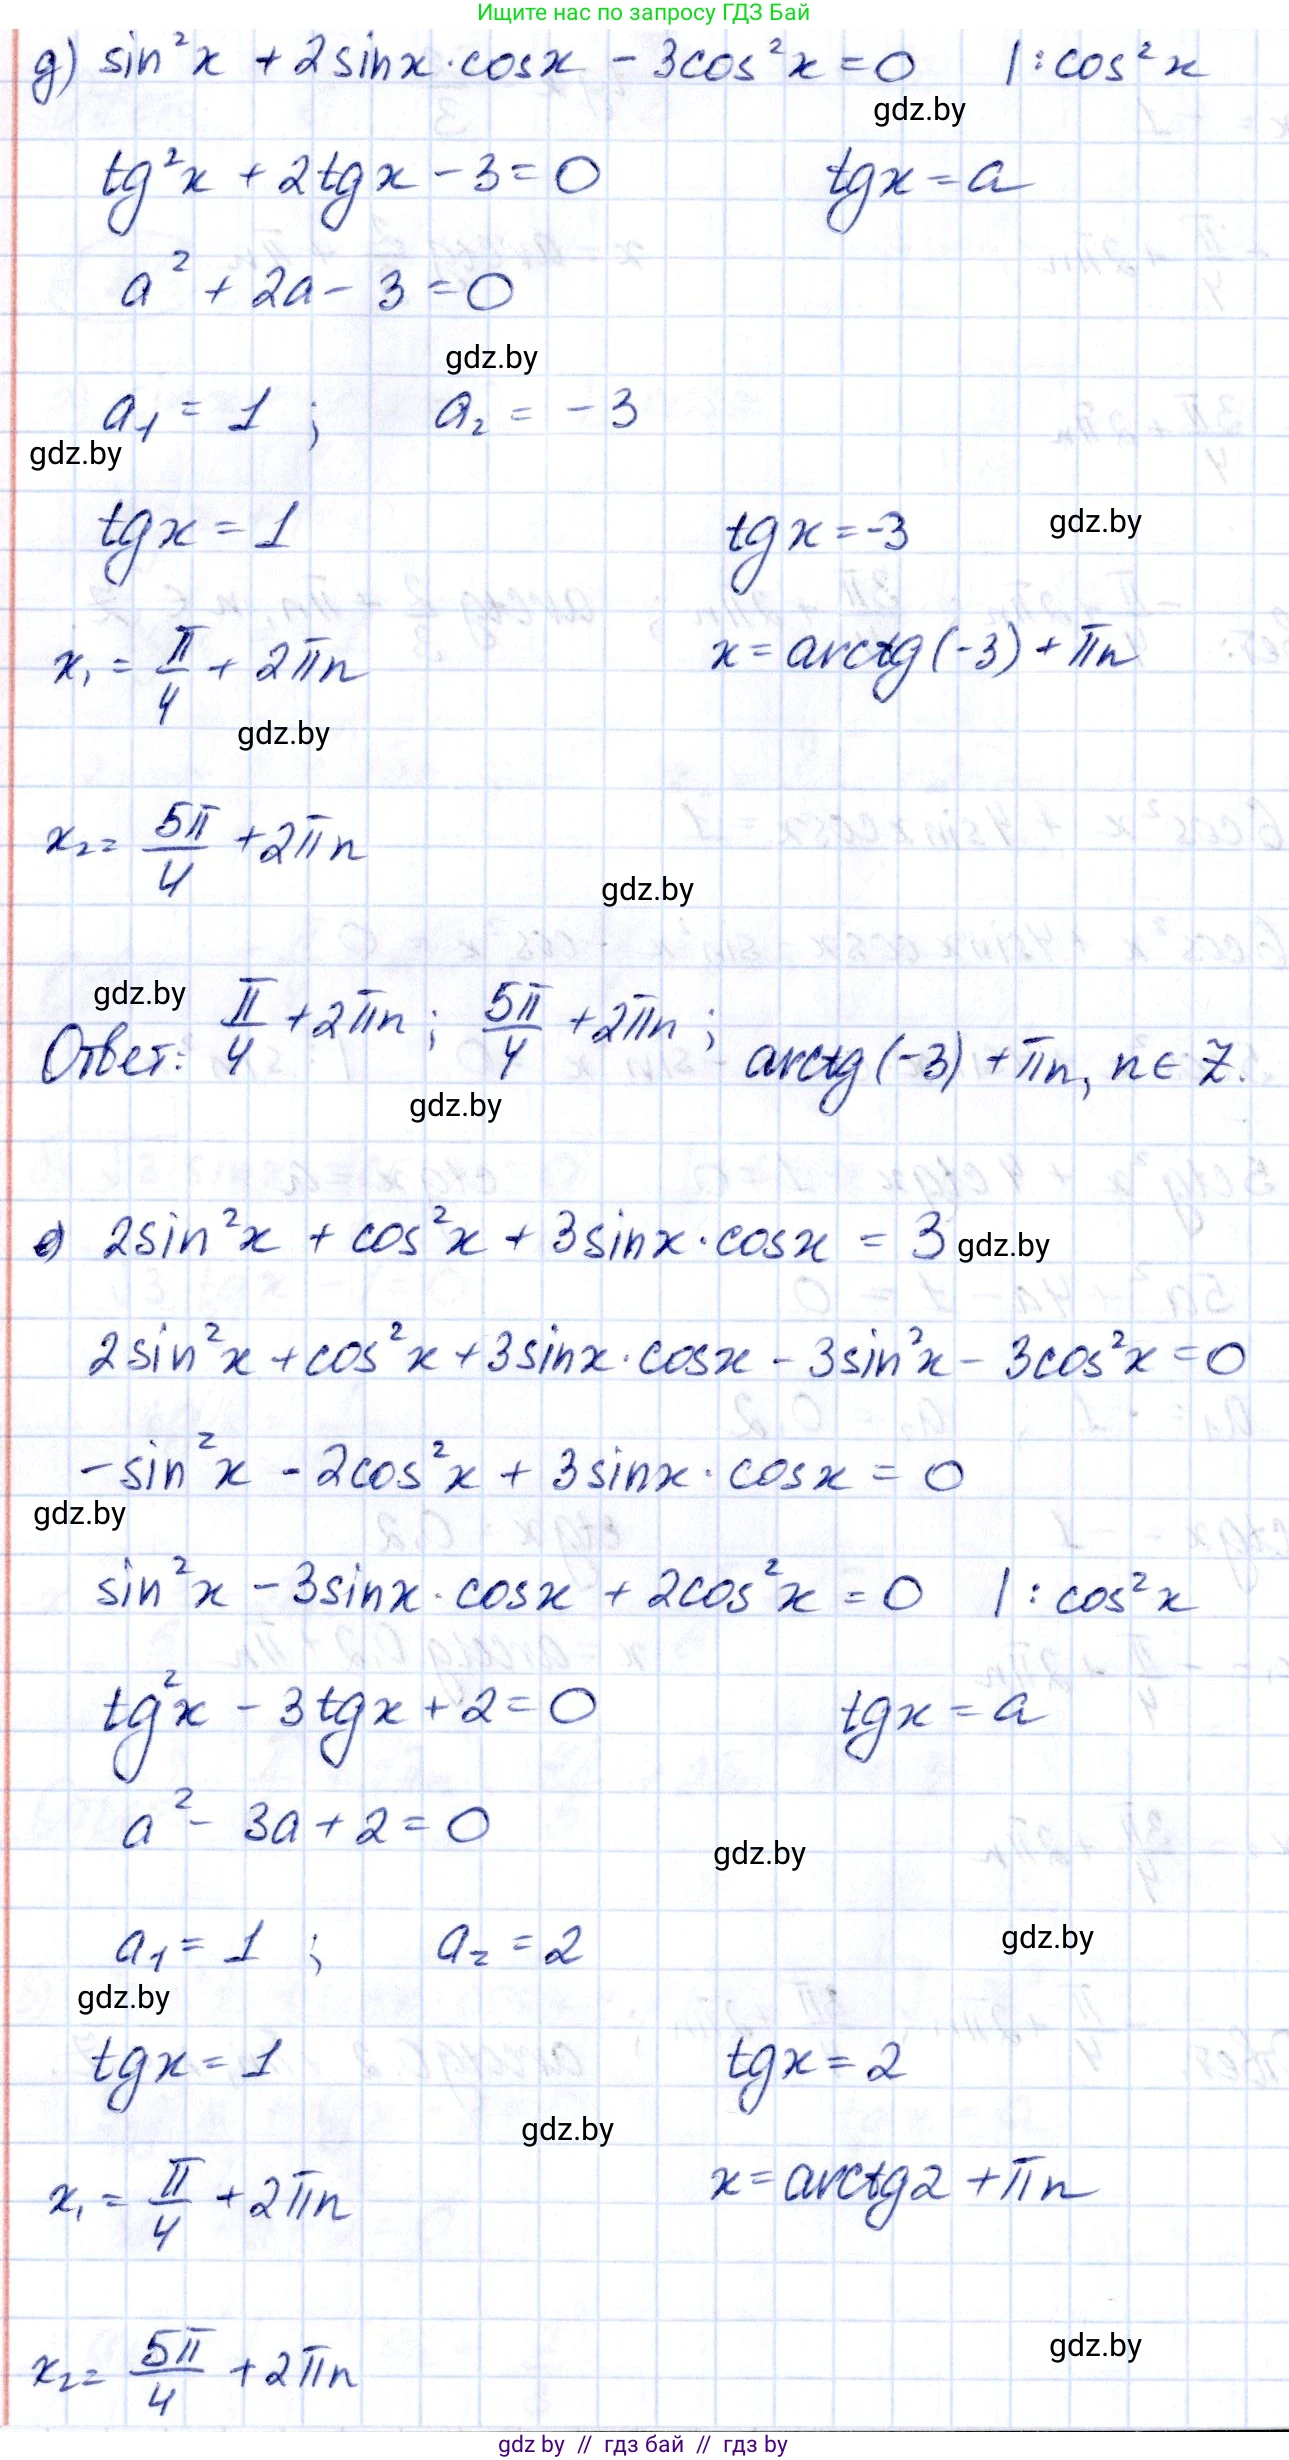 Ищите нас по запросу ГДЗ Бай
д) sin²x + 2sinx·cosx - 3cos²x = 0 |:cos²x
gdz.by
tg²x + 2tgx - 3 = 0 tgx = a
a² + 2a - 3 = 0
gdz.by
a₁ = 1 ; a₂ = -3
gdz.by
tgx = 1 tgx = -3 gdz.by
x₁ = π/4 + 2πn x = arctg(-3) + πn
gdz.by
x₂ = 5π/4 + 2πn
gdz.by
gdz.by
Ответ: π/4 + 2πn ; 5π/4 + 2πn ; arctg(-3) + πn, n ∈ Z.
gdz.by
е) 2sin²x + cos²x + 3sinx·cosx = 3 gdz.by
2sin²x + cos²x + 3sinx·cosx - 3sin²x - 3cos²x = 0
-sin²x - 2cos²x + 3sinx·cosx = 0
gdz.by
sin²x - 3sinx·cosx + 2cos²x = 0 |:cos²x
tg²x - 3tgx + 2 = 0 tgx = a
a² - 3a + 2 = 0
gdz.by
a₁ = 1 ; a₂ = 2 gdz.by
gdz.by
tgx = 1 tgx = 2
gdz.by
x₁ = π/4 + 2πn x = arctg2 + πn
gdz.by
x₂ = 5π/4 + 2πn
gdz by // гдз бай // гдз by